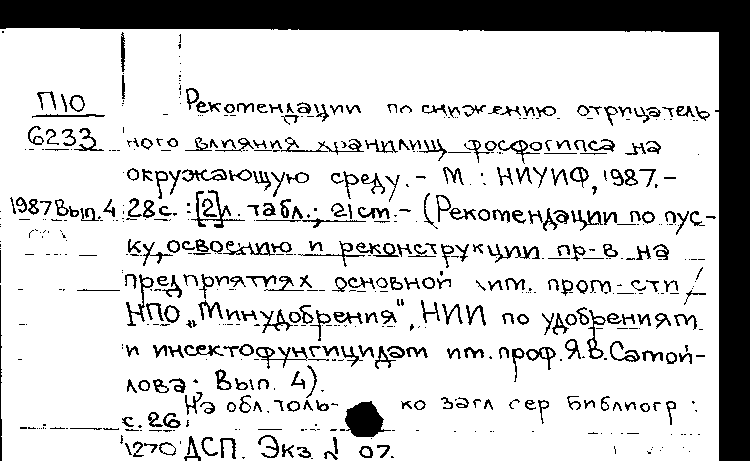 П10
6233
1987 Вып. 4
Рекомендации по снижению отрицатель-
ного влияния хранилищ фосфогипса на
окружающую среду. - М. : НИУИФ, 1987. -
28с. : [2]л. табл.; 21см. - (Рекомендации по пус-
ку, освоению и реконструкции пр-в на
предприятиях основной хим. пром-сти /
НПО „Минудобрения", НИИ по удобрениям
и инсектофунгицидам им. проф. Я.В. Самой-
лова; Вып. 4).
На обл. толь- ко загл сер Библиогр :
с. 26.
1270 ДСП. Экз 07.